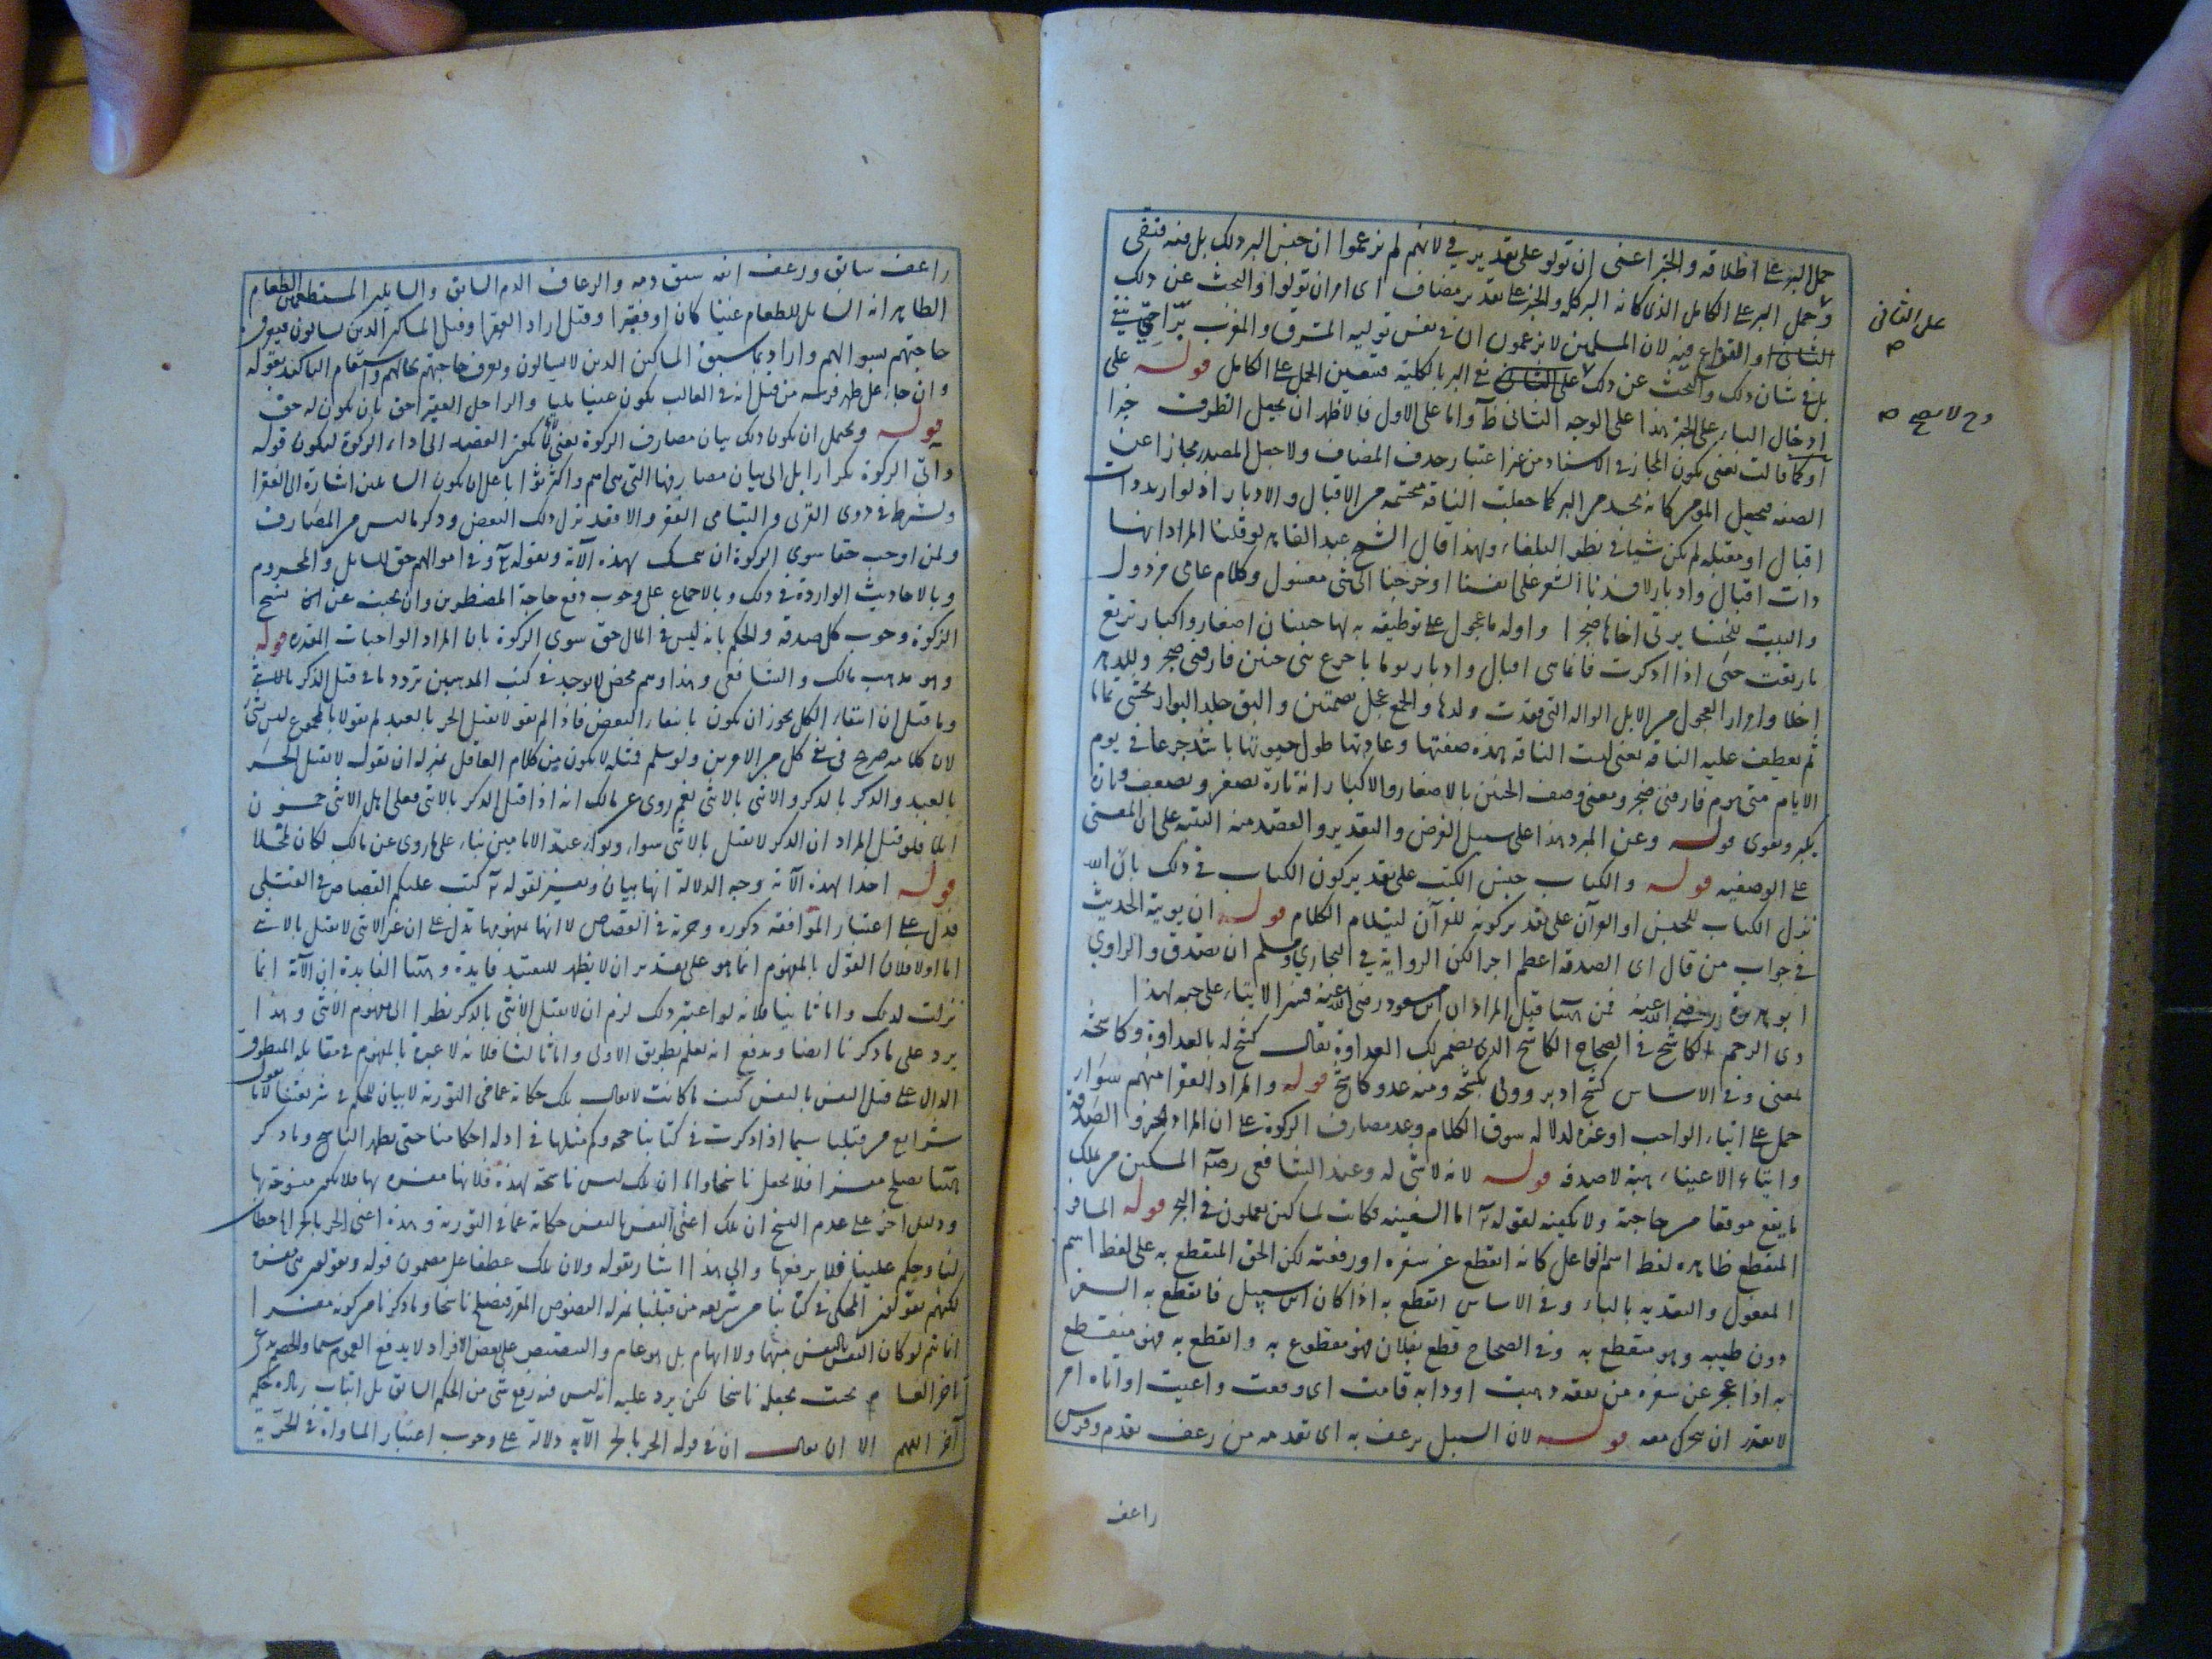 حمل البر على اطلاقه والخبر اعنى ان تولوا على تقدير في لانهم لم يزعموا ان جنس البر ذلك بل منه فنفى
وحمل البر على الكامل الذى كانه البر كله والخبر على تقدير مضاف اى امر ان تولوا والبحث عن ذلك
على الثانى
او القول فيه لان المسلمين لا يزعمون ان في نفس تولية المشرق والمغرب برا حتى ينفى
بل في شان ذلك والبحث عن ذلك على الثانى نفى البر بالكلية فتعين الحمل على الكامل قوله على
وح لا يصح صح
ادخال الباء على الخبر هذا على الوجه الثانى ظ واما على الاول فالاظهر ان يجعل الظرف خبرا
او كما قالت يعنى يكون المجاز في الاسناد من غير اعتبار حذف المضاف ولا جعل المصدر مجازا عن
الصفة فجعل المؤمن كانه تجسد من البر كما جعلت الناقة مجسمة من الاقبال والادبار اذ لو اريد ذات
اقبال او مقبلة لم يكن شيئا في نظر البلغاء ولهذا قال الشيخ عبد القاهر لو قلنا المراد انها
ذات اقبال وادبار لافسدنا الشعر على انفسنا وخرجنا الى شئ مغسول وكلام عامى مرذول
والبيت للخنساء ترثى اخاها صخرا واوله ما عجول على بو تطيف به لها حنينان اصغار واكبار ترتع
ما رتعت حتى اذا ادكرت فانما هى اقبال وادبار يوما باوجع منى حين فارقنى صخر وللدهر
احلاء وامرار العجول من الابل الواله التى فقدت ولدها والجمع عجل بضمتين والبو جلد الحوار يحشى ثماما
ثم يعطف عليه الناقة يعنى ليست الناقة هذه صفتها وعادتها طول حيوتها باشد جزعا في يوم
الايام منى يوم فارقنى صخر ومعنى وصف الحنين بالاصغار والاكبار انه تارة يصغر ويضعف وتارة
يكبر ويقوى قوله وعن المبرد هذا على سبيل الفرض والتقدير والقصد منه التنبيه على ان المعنى
على الوصفية قوله والكتاب جنس الكتب على تقدير كون الكتاب في ذلك بان الله
نزل الكتاب للجنس او القرآن على تقدير كونه للقرآن ليتلاءم الكلام قوله ان يؤتيه الحديث
في جواب من قال اى الصدقة اعظم اجرا لكن الرواية في البخاري ومسلم ان تصدق والراوي
ابو هريرة رضى الله عنه فمن هنا قيل المراد ان ابن مسعود رضى الله عنه فسر الايتاء على حبه بهذا
ذى الرحم الكاشح في الصحاح الكاشح الذى يضمر لك العداوة يقال كشح له بالعداوة وكاشحه
بمعنى وفي الاساس كشح ادبر وولى بكشحه ومنه عدو كاشح قوله والمراد الفقراء منهم سواء
حمل على ايتاء الواجب او غيره لدلالة سوق الكلام وعد مصارف الزكوة على ان المراد الخير والصدقة
وايتاء الاغنياء هبة لا صدقة قوله لانه لا شئ له وعند الشافعى رضه المسكين من يملك
ما يقع موقعا من حاجته ولا يكفيه لقوله تعالى اما السفينة فكانت لمساكين يعملون في البحر قوله المسافر
المنقطع ظاهره لفظ اسم الفاعل كانه انقطع عن سفره او رفقته لكن الحق المنقطع به على لفظ اسم
المفعول والتعدية بالباء وفي الاساس انقطع به اذا كان ابن سبيل فانقطع به السفر
دون طيبه وهو منقطع به وفي الصحاح قطع بفلان فهو مقطوع به وانقطع به فهو منقطع
به اذا عجز عن سفره من نفقة ذهبت او دابة قامت اى وقفت واعيت او اتاه امر
لا يقدر ان يتحرك معه قوله لان السبيل يرعف به اى تقدمه من رعف تقدم وفرس
راعف
راعف سابق ورعف انفه سبق دمه والرعاف الدم السابق والسايلين المستطعمين الطعام
الظاهر انه السائل للطعام غنيا كان او فقيرا وقيل اراد الفقراء وقيل المساكين الذين يسالون فيعرف
حاجتهم بسوالهم واراد بما سبق المساكين الذين لا يسالون وتعرف حاجتهم بحالهم
وان جاء على ظهر فرسه من قبل انه في الغالب يكون غنيا مليا والراجل الفقير احق بان يكون له حق
قوله ويحتمل ان يكون ذلك بيان مصارف الزكوة يعنى لم يكن القصد الى اداء الزكوة ليكون قوله
وآتى الزكوة تكرارا بل الى بيان مصارفها التى هى اهم واكثر ثوابا على ان يكون السائلين اشارة الى الفقراء
ويشترط في ذوى القربى واليتامى الفقر والا فقد ترك ذلك البعض وذكر ما ليس من المصارف
ولمن اوجب حقا سوى الزكوة ان يتمسك بهذه الآية وبقوله تعالى وفي اموالهم حق للسائل والمحروم
وبالاحاديث الواردة في ذلك وبالاجماع على وجوب دفع حاجة المضطرين وان يجيب عن نسخ
الزكوة وجوب كل صدقة والحكم بانه ليس في المال حق سوى الزكوة بان المراد الواجبات المقدرة قوله
وهو مذهب مالك والشافعى وهذا وهم محض لا يوجد في كتب المذهبين تردد ما في قتل الذكر بالانثى
وما قيل ان انتفاء الكل يجوز ان يكون بانتفاء البعض فاذا لم يقولا بقتل الحر بالعبد لم يقولا بالمجموع ليس بشئ
لان كلامه صريح في نفى كل من الامرين ولو سلم فمثله لا يكون من كلام العاقل بمنزلة ان تقول لا يقتل الحر
بالعبد والذكر بالذكر والانثى بالانثى نعم روى عن مالك انه اذا قتل الذكر بالانثى فعلى اهل الانثى خمسون
ابلا فلو قيل المراد ان الذكر لا يقتل بالانثى سواء بسواء عند الامامين بناء على ما روى عن مالك لكان محتملا
قوله اخذا بهذه الآية وجه الدلالة انها بيان وتفسير لقوله تعالى كتب عليكم القصاص في القتلى
فدل على اعتبار الموافقة ذكورة وحرية في القصاص لا انها بمفهومها تدل على ان غير الانثى لا يقتل بالانثى
اما اولا فلان القول بالمفهوم انما هو على تقدير ان لا يظهر للتقييد فايدة وهنا الفايدة ان الآية انما
نزلت لذلك واما ثانيا فلانه لو اعتبر ذلك لزم ان لا يقتل الانثى بالذكر نظرا الى مفهوم الانثى وهذا
يرد على ما ذكرنا ايضا ويدفع انه يعلم بطريق الاولى واما ثالثا فلانه لا عبرة بالمفهوم في مقابلة المنطوق
الدال على قتل النفس بالنفس كيف ما كانت لا يقال تلك حكاية عما في التورية لا بيان للحكم في شريعتنا لانا نقول
شرايع من قبلنا سيما اذا ذكرت في كتابنا حجة وكم مثلها في ادلة احكامنا حتى يظهر الناسخ وما ذكر
هنا يصلح مفسرا فلا يجعل ناسخا واما ان تلك ليس ناسخة لهذه فلانها مفسرة بها فلا تكون منسوخة بها
ودليل آخر على عدم النسخ ان تلك اعنى النفس بالنفس حكاية عما في التورية وهذه اعنى الحر بالحر الخ خطاب
لنا وحكم علينا فلا يرفعها والى هذا اشار بقوله ولان تلك عطفا على مضمون قوله ويقولون هى مفسرة
لكنهم يقولون المحكى في كتابنا من شريعة من قبلنا بمنزلة المنصوص المقرر فيصلح ناسخا وما ذكرنا من كونه مفسرا
انما يتم لو كان النفس بالنفس مبهما ولا ابهام بل هو عام والتنصيص على بعض الافراد لا يدفع العموم سيما والخصم يدعى
تاخر العام بحيث يجعله ناسخا لكن يرد عليه انه ليس فيه رفع شئ من الحكم السابق بل اثبات زيادة حكم
آخر اللهم الا ان يقال ان في قوله الحر بالحر الآية دلالة على وجوب اعتبار المساواة في الحرية